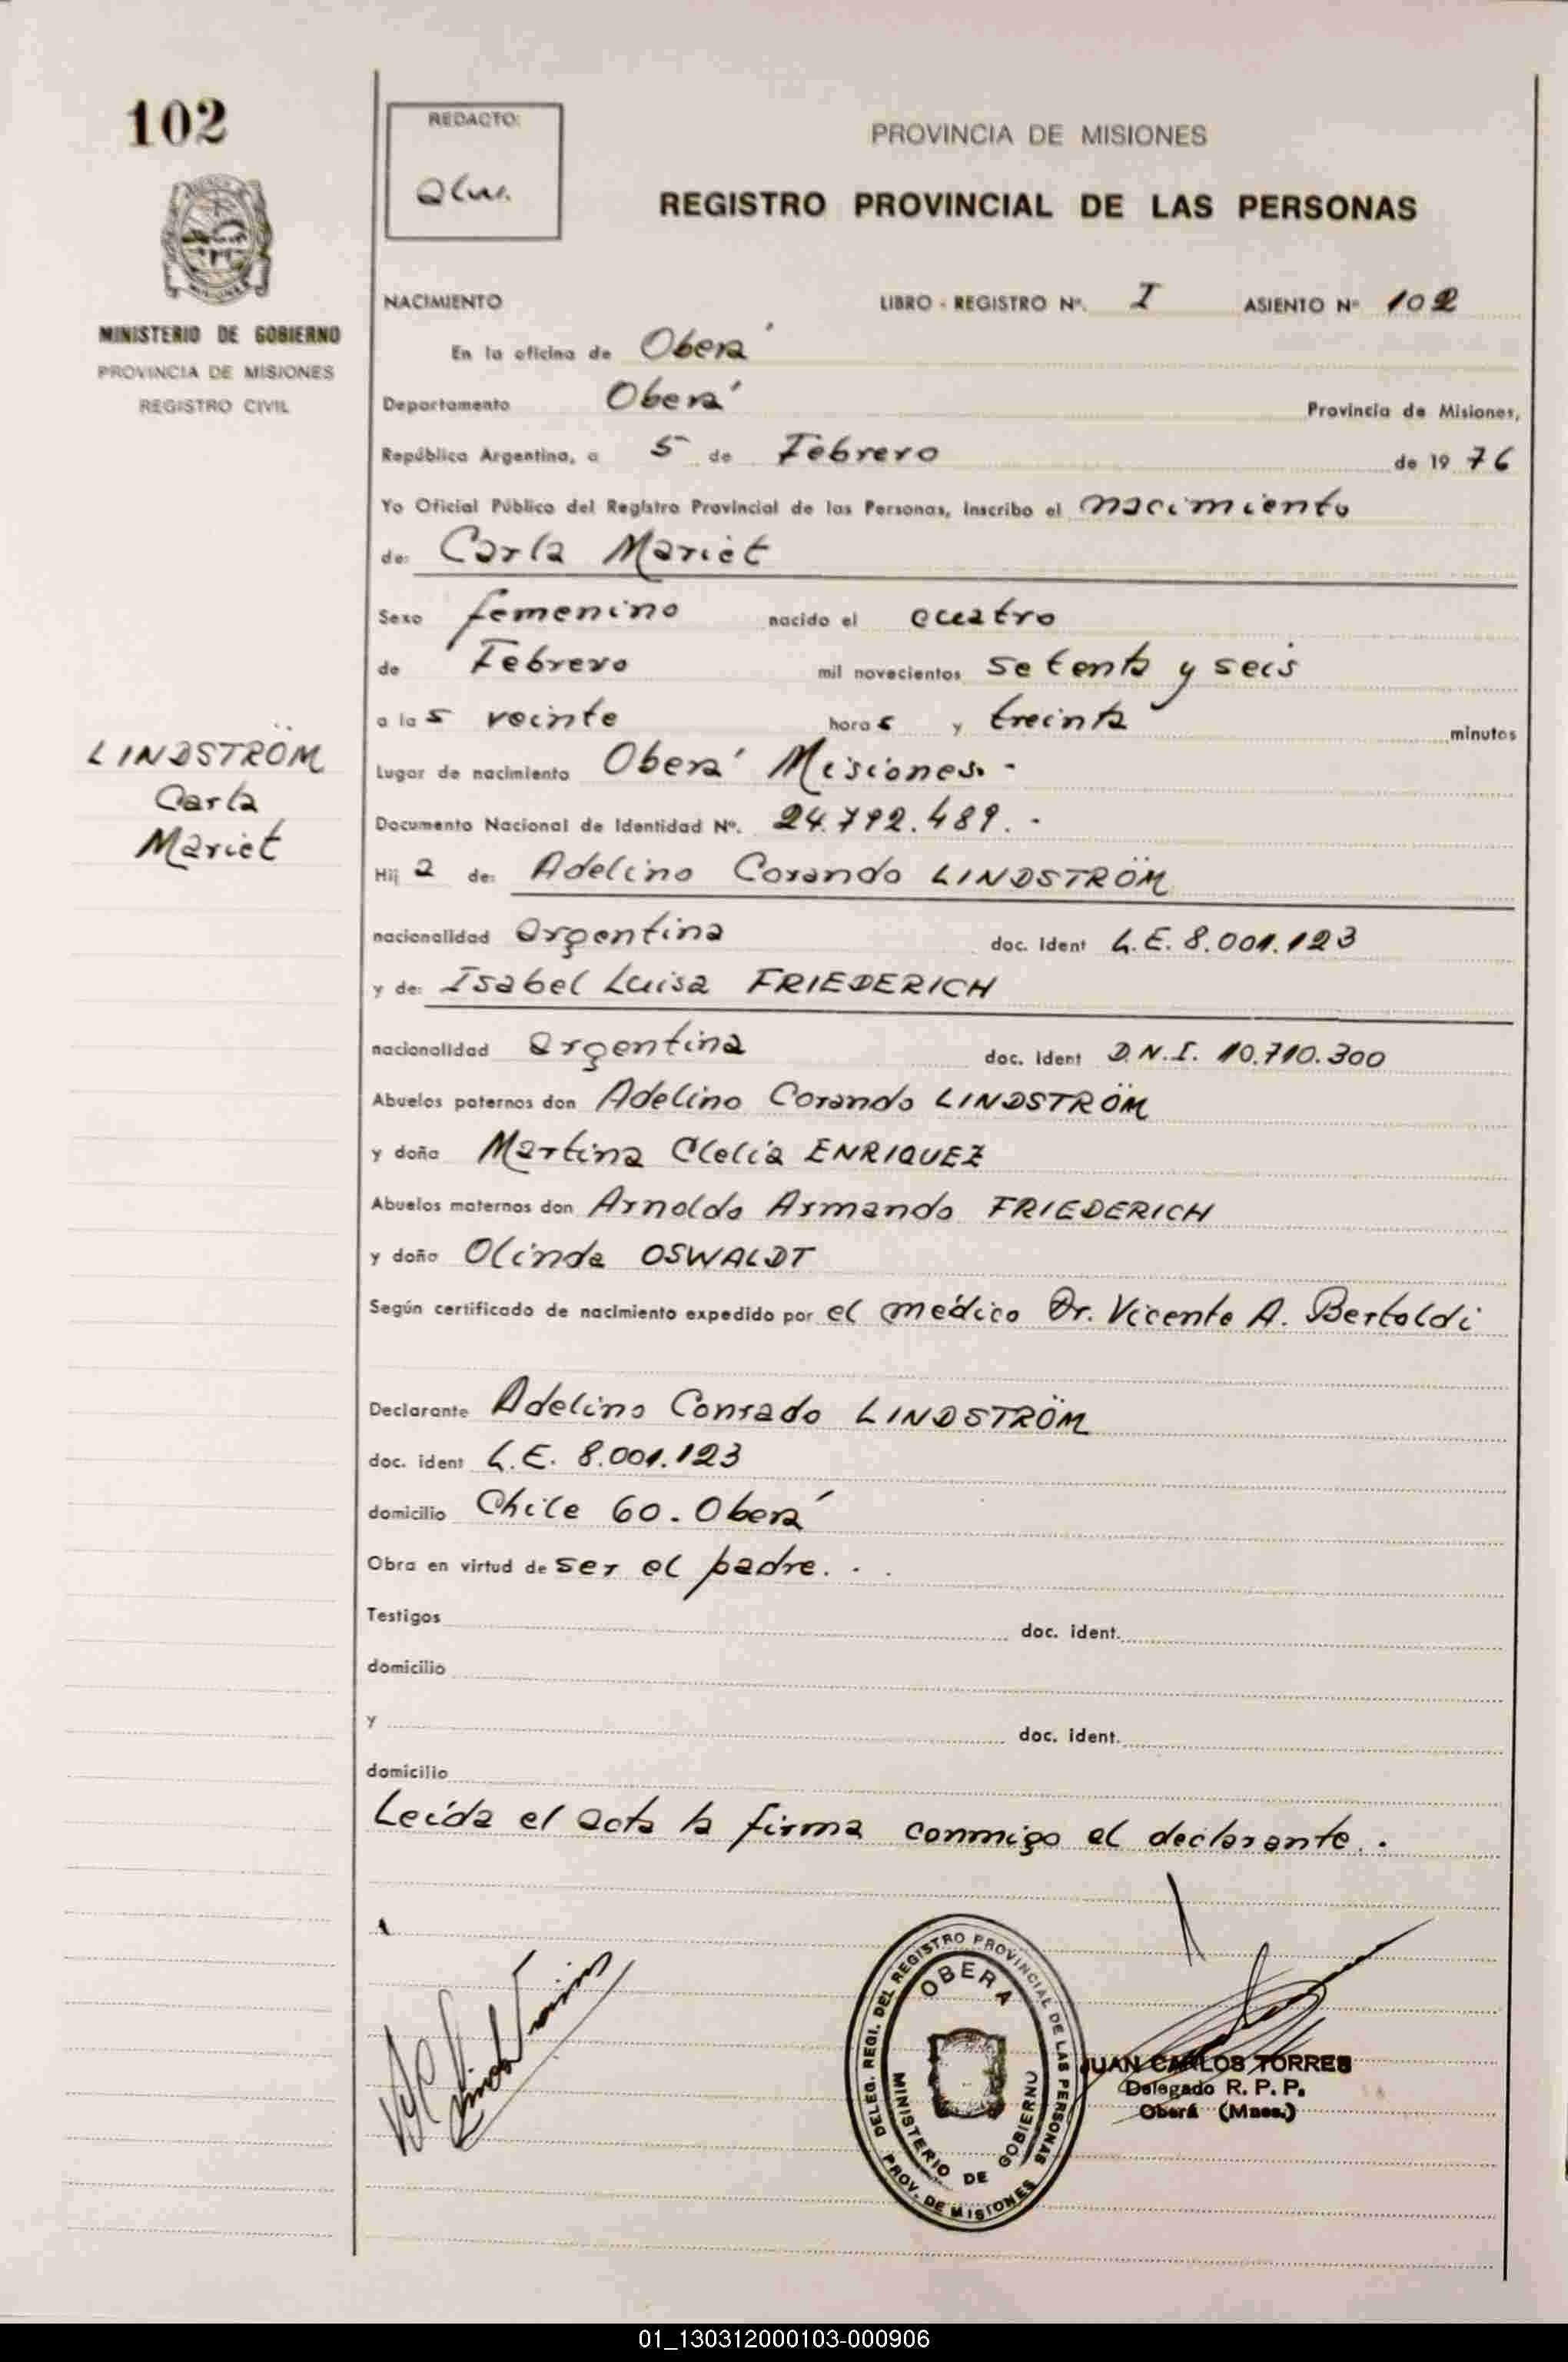 102
REDACTO:
MINISTERIO DE GOBIERNO
PROVINCIA DE MISIONES
REGISTRO CIVIL
PROVINCIA DE MISIONES
REGISTRO PROVINCIAL DE LAS PERSONAS
NACIMIENTO LIBRO - REGISTRO Nº. I ASIENTO Nº 102
En la oficina de Oberá
Departamento Oberá Provincia de Misiones,
República Argentina, a 5 de Febrero de 1976
Yo Oficial Público del Registro Provincial de las Personas, inscribo el nacimiento
de: Carla Mariet
Sexo femenino nacido el cuatro
de Febrero mil novecientos setenta y seis
a las veinte horas y treinta minutos
Lugar de nacimiento Oberá Misiones. -
Documento Nacional de Identidad Nº. 24.792.489. -
Hija de: Adelino Corando LINDSTRÖM
nacionalidad argentina doc. ident L.E. 8.001.123
y de: Isabel Luisa FRIEDERICH
nacionalidad argentina doc. ident D.N.I. 10.710.300
Abuelos paternos don Adelino Corando LINDSTRÖM
y doña Martina Clelia ENRIQUEZ
Abuelos maternos don Arnoldo Armando FRIEDERICH
y doña Olinda OSWALDT
Según certificado de nacimiento expedido por el médico Dr. Vicente A. Bertoldi
Declarante Adelino Conrado LINDSTRÖM
doc. ident L.E. 8.001.123
domicilio Chile 60. Oberá
Obra en virtud de ser el padre. . .
Testigos doc. ident.
domicilio
y doc. ident.
domicilio
Leída el acta la firma conmigo el declarante. .
LINDSTRÖM
Carla
Mariet
DELEG. REGI. DEL REGISTRO PROVINCIAL DE LAS PERSONAS
OBERA
MINISTERIO DE GOBIERNO
PROV. DE MISIONES
JUAN CARLOS TORRES
Delegado R. P. P.
Oberá (Mnes.)
01_130312000103-000906